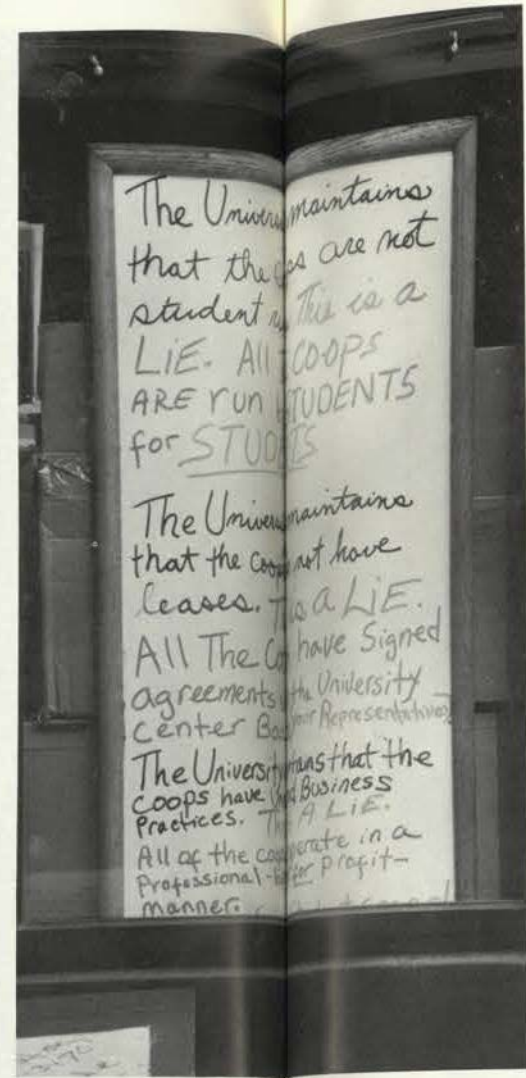 The Univers maintains
that the ps are not
student r This is a
LiE. All COOPS
ARE run STUDENTS
for STUD TS
The Univers maintains
that the coo not have
leases. Th is a LiE.
All The Co have Signed
agreements the University
Center Boa your Representatives
The University tains that the
coops have Business
Practices. A LiE.
All of the coo erate in a
Professional- for profit-
manner.